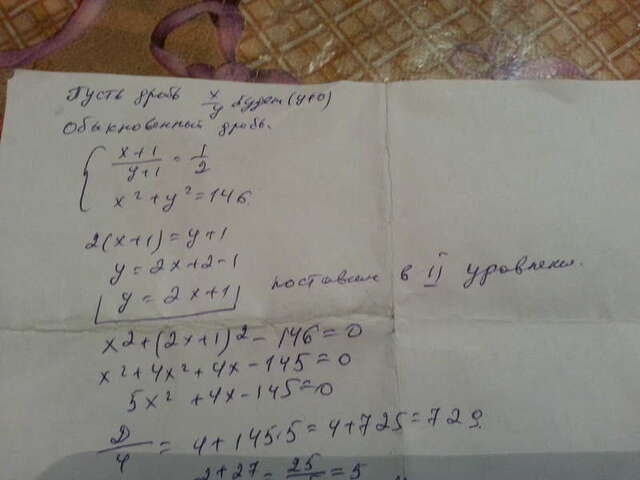 Пусть дробь x/y будет (y≠0)
Обыкновенный дробь.
{ (x+1)/(y+1) = 1/2
x² + y² = 146.
2(x+1) = y+1
y = 2x+2-1
y = 2x+1 поставим в II уровнении.
x² + (2x+1)² - 146 = 0
x² + 4x² + 4x - 145 = 0
5x² + 4x - 145 = 0
D/4 = 4 + 145·5 = 4 + 725 = 729.
2+27 = 25 = 5